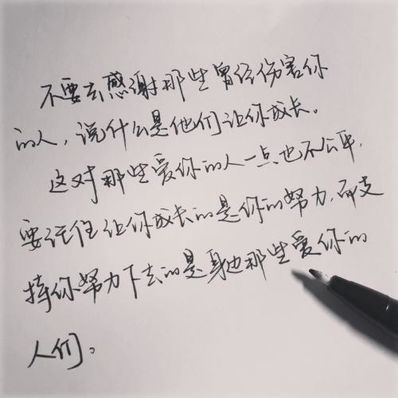 不要去感谢那些曾经伤害你
的人，说什么是他们让你成长。
这对那些爱你的人一点也不公平，
要记住让你成长的是你的努力，而支
持你努力下去的是身边那些爱你的
人们。